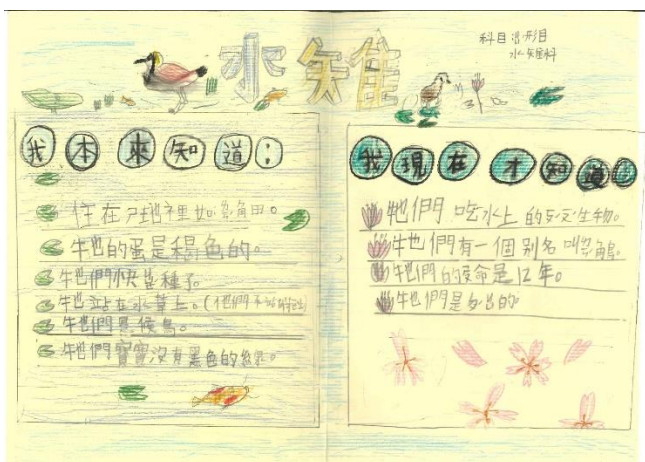 水雉
科目:鴴形目
水雉科
我本來知道:
住在ㄕ地裡如菱角田。
牠的蛋是褐色的。
牠們快
種了。
牠站在水草上。(他們不
牠們是候鳥。
牠們寶寶沒有黑色的線。
我現在才知道:
牠們吃水上的
生物。
牠們有一個別名叫菱角鳥。
牠們的受命是12年。
牠們是
的